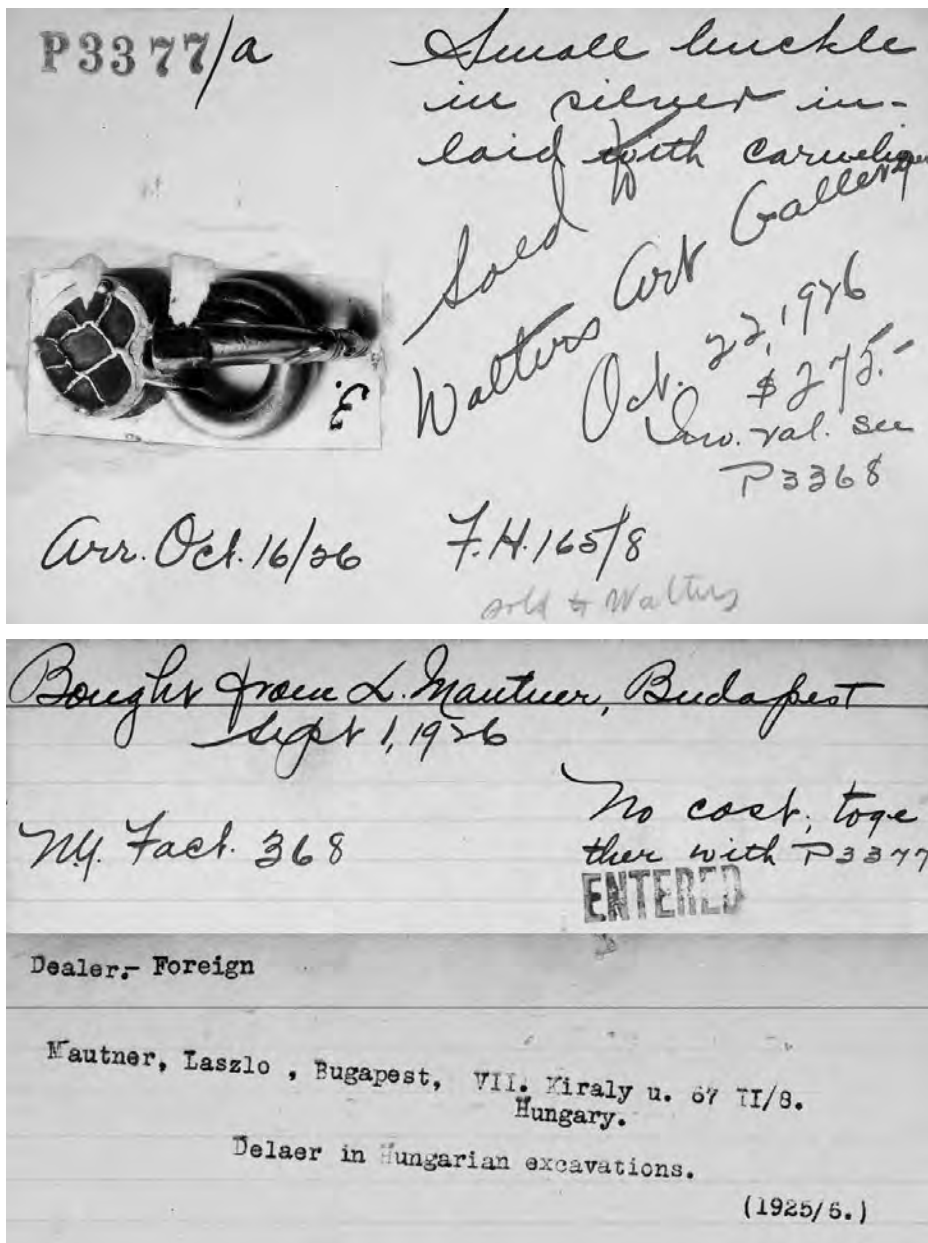 P3377/a
Small buckle
in silver in-
laid with
Sold to
Walters Art Gallery
Oct. 22, 1926
$275.-
Inv. val. see
P3368
E.
Arr. Oct. 16/26
F.H. 165/8
sold to Walters
Bought from L. Mautner, Budapest
Sept 1, 1926
N.Y. Fact. 368
No cost, toge
ther with P3377
ENTERED
Dealer.- Foreign
Mautner, Laszlo , Bugapest, VII. Kiraly u. 67 II/8.
Hungary.
Delaer in Hungarian excavations.
(1925/6.)